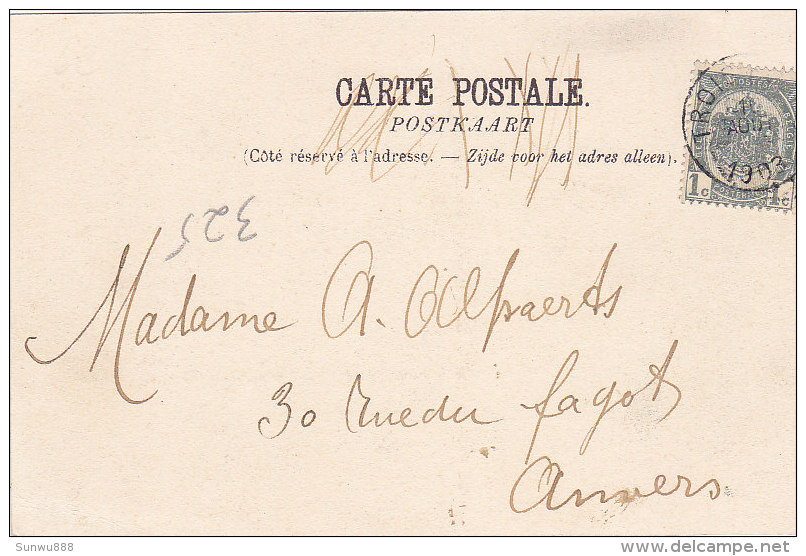 CARTE POSTALE.
POSTKAART
(Côté réservé à l'adresse. — Zijde voor het adres alleen).
1903
1c 1c
325
Madame A.
30 Rue du fagot
Anvers
Sunwu888
delcampe.net